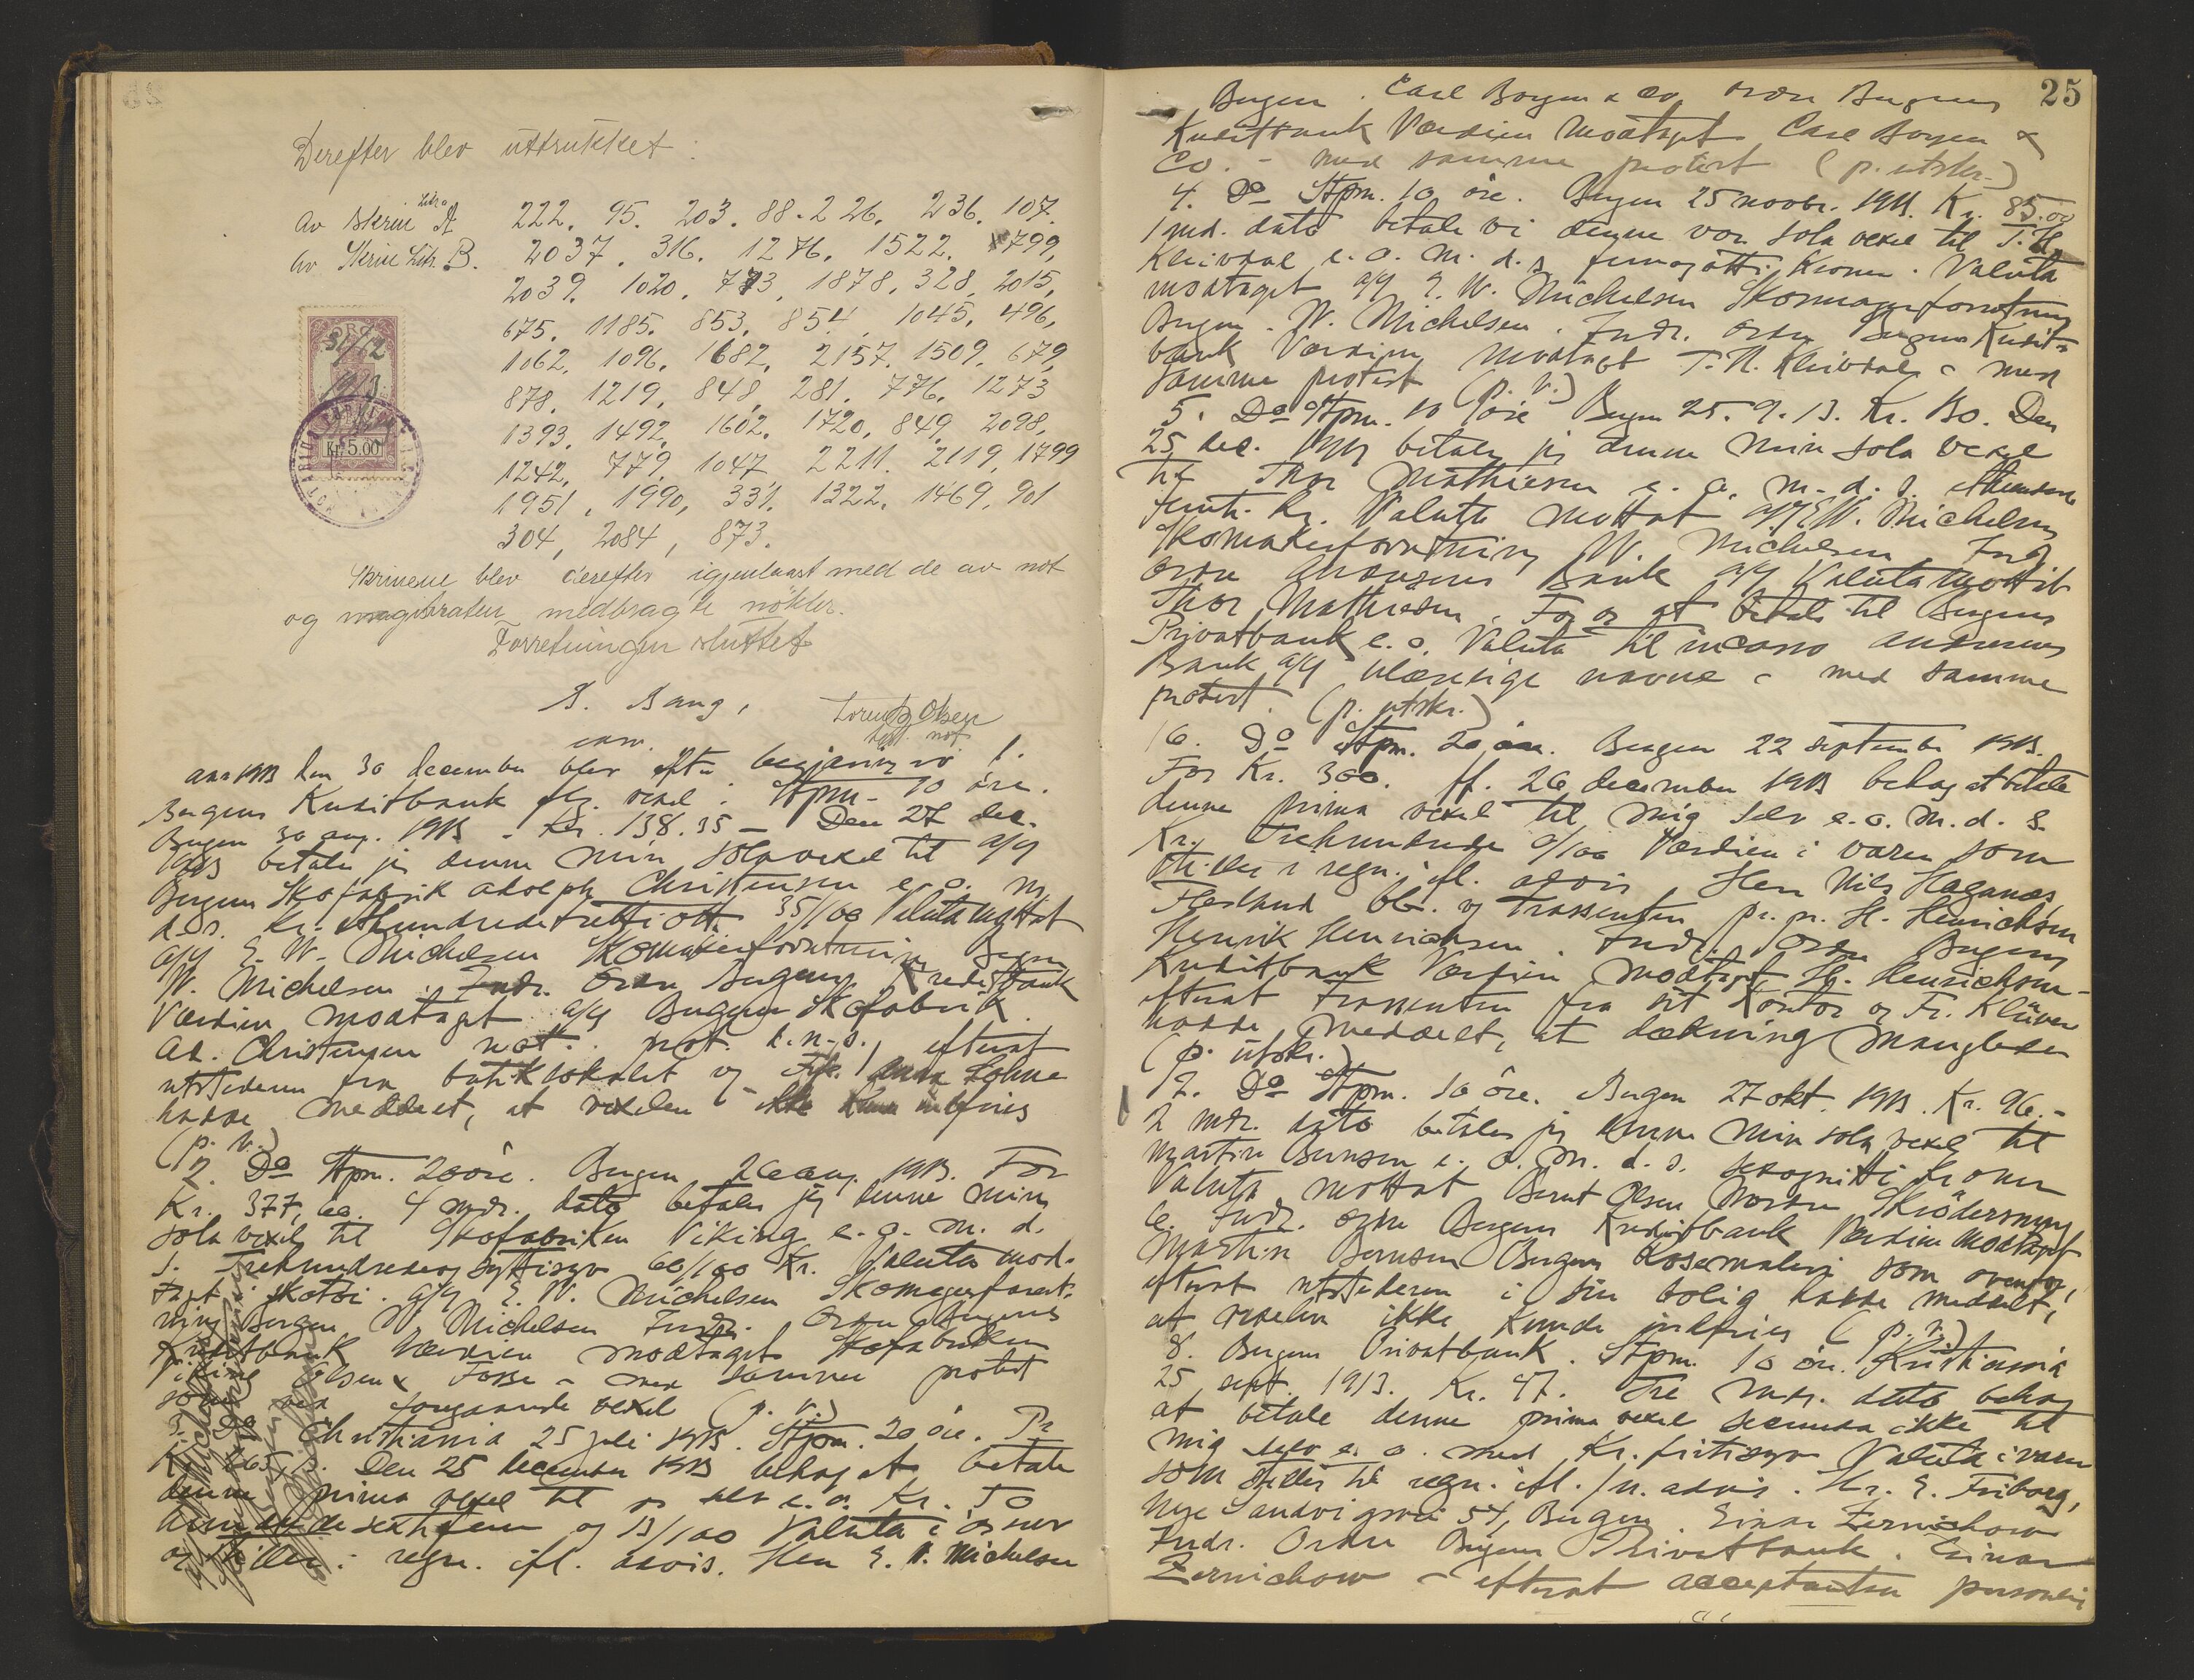 Derefter blev uttrukket:
Av Skrin Litr. A 222. 95. 203. 88. 226. 236. 107.
Av Skrin Litr. B. 2037. 316. 1276. 1522. 1799,
2039. 1020. 773, 1878, 328, 2015,
675. 1185. 853, 854, 1045, 496,
1062, 1096, 1682, 2157. 1509. 679,
878, 1219, 848, 281. 776, 1273
1393, 1492, 1602. 1720, 849, 2098,
1242, 779, 1047 2211. 2119, 1799
1951, 1990, 331, 1322, 1469, 901
304, 2084, 873.
31/12
1913
Kr. 5.00
Skrinene blev derefter igjenlaast med de av not
og magistraten medbragte nökler.
Forretningen sluttet
B. Bang,
Lorentz Olsen
not
aar 1913 den 30 december blev efter begjæring av 1.
Bergens Kreditbank flg. vexel: Stpm. 10 öre.
Bergen 30 aug. 1913 - Kr. 138.35 - Den 27 dec.
1913 betaler jeg denne min sola vexel til A/S
Bergens Skofabrik Adolph Christensen e. o. m.
d. s. Kr. Ethundredetrettiotte 35/100 Valuta mottat
A/S E. W. Michelsen Skomakerforretning Bergen
W. Michelsen. Indr. Ordre Bergens Kreditbank
Værdien modtaget A/S Bergens Skofabrik
Ad. Christensen not. prot. d.n.s., efterat
utstederen fra butiklokalet og Frk. Anna Lohne
hadde meddelt, at vexelen ikke kunde indfries
(p. v.)
2. Do Stpm. 20 öre. Bergen 26 aug. 1913. For
Kr. 377,60. 4 mdr. dato betaler jeg denne min
sola vexel til Skofabriken Viking e. o. m. d.
s. Trehundredeogsyttisyv 60/100 Kr. Valuta mod-
taget i skotöi. A/S E. W. Michelsen Skomagerforret-
ning Bergen W. Michelsen Indr. Ordre Bergens
Kreditbank Værdien modtaget Skofabriken
Viking Olsen & Fosse - med samme protest
som ved foregaaende vexel (p. v.)
3. Do Christiania 25 juli 1913. Stpm. 20 öre. Pr
Kr. 265,13. Den 25 december 1913 behag at betale
denne prima vexel til os selv e. o. Kr. To
hundredesextifem og 13/100 Valuta i varer
og stilles i regn. ifl. advis. Herr E. W. Michelsen
25
Bergen. Carl Boyen & Co, ordre Bergens
Kreditbank Værdien modtaget Carl Boyen &
Co. - med samme protest (p. utskr.)
4. Do Stpm. 10 öre. Bergen 25 novbr. 1913. Kr. 85.00
1 md. dato betale vi denne vor sola vexel til T. H.
Kleivdal e. o. m. d. s. femogotti Kroner. Valuta
modtaget A/S E. W. Michelsen Skomagerforretning
Bergen. W. Michelsen. Indr. ordre Bergens Kredit-
bank Værdien modtaget T. H. Kleivdal - med
samme protest (p. v.)
5. Do Stpm. 10 öre Bergen 25. 9. 13. Kr. 150. Den
25 dec. 1913 betaler jeg denne min sola vexel
til Thor Mathiesen e. o. m. d. s. Ethundrede
femti Kr. Valuta mottat A/S E. W. Michelsen
Skomakerforretning W. Michelsen, Indr.
ordre Andresens Bank A/S Valuta mottat
Thor Mathiesen. For os at betale til Bergens
Privatbank e. o. Valuta til incasso Andresens
Bank A/S ulæselige navne - med samme
protest. (p. utskr.)
6. Do Stpm. 20 öre. Bergen 22 september 1913.
For Kr. 300. Pr. 26 december 1913 behag at betale
denne prima vexel til mig selv e. o. m. d. s.
Kr. Trehundrede 0/100 Værdien i varer som
stilles i regn. ifl. advis, Herr Nils Haganæs,
Flesland bl. og trassenten pr. pr. H. Henrichsen
Henrik Henrichsen. Indr. Ordre Bergens
Kreditbank Værdien modtaget H. Henrichsen -
efterat trassenten fra sit kontor og Fr. Klüver
hadde meddelt, at dækning manglede
(p. utskr.)
7. Do Stpm. 10 öre. Bergen 27 okt. 1913. Kr. 96.-
2 mdr. dato betaler jeg denne min sola vexel til
Martin Bernsen e. o. m. d. s. sexognitti kroner
Valuta mottat Bernt Olsen Nordre Skrödersmug
6. Indr. ordre Bergens Kreditbank Værdien modtaget
Martin Bernsen Bergens Rosemaleri som ovenfor,
efterat utstederen i sin bolig hadde meddelt,
at vexelen ikke kunde indfries (p. v.)
8. Bergens Privatbank. Stpm. 10 öre. Kristiania
25 sept. 1913. Kr. 47. Tre mdr. dato behag
at betale denne prima vexel secunda ikke til
mig selv e. o. med Kr. firtisyv Valuta i varer
som stilles til regn. ifl. / n. advis. Hr. E. Friborg,
Nye Sandviksvei 54, Bergen. Einar Zernichow
Indr. Ordre Bergens Privatbank. Einar
Zernichow - efterat acceptanten personlig